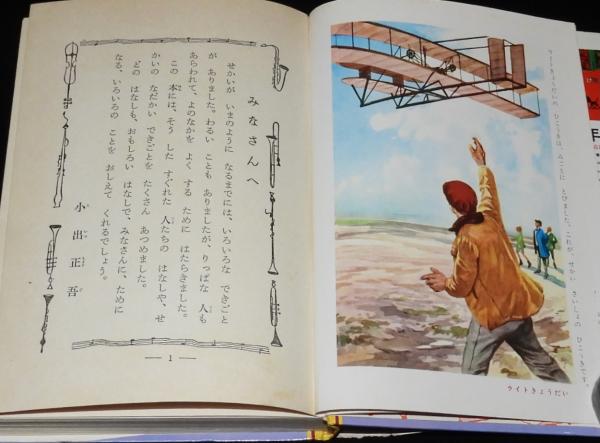 みなさんへ
せかいが いまのように なるまでには、いろいろな できごと
が ありました。わるい ことも ありましたが、りっぱな 人も
あらわれて、よのなかを よく する ために はたらきました。
この 本には、そう した すぐれた 人たちの はなしや、せ
かいの なだかい できごとを たくさん あつめました。
どの はなしも、おもしろい はなしで、みなさんに、ために
なる、いろいろの ことを おしえて くれるでしょう。
小出正吾
— 1 —
ライトきょうだいの ひこうきは、みごとに とびました。これが、せかい さいしょの ひこうきです。
ライトきょうだい